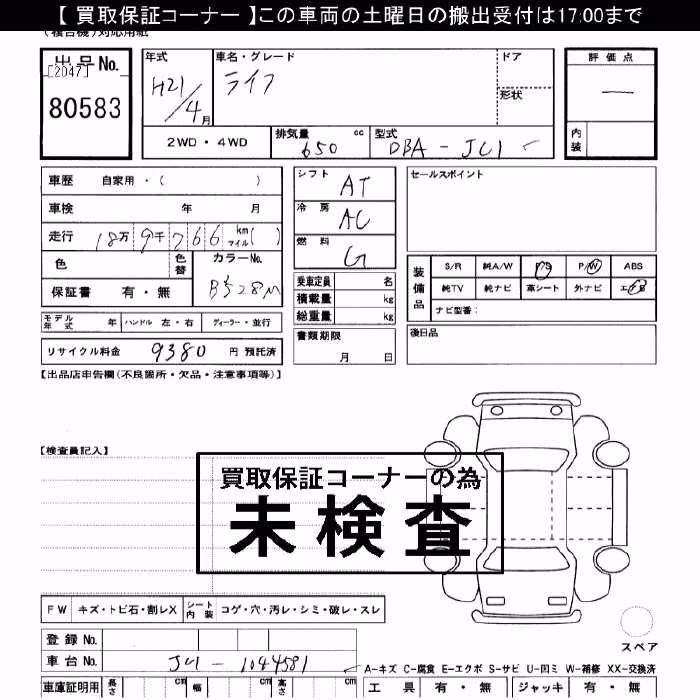 【 買取保証コーナー 】この車両の土曜日の搬出受付は17:00まで
(複合機)対応用紙
出品No.
[2047]
80583
年式
H21/4月
車名・グレード
ライフ
ドア
形状
評価点
―
内装
2WD・4WD
排気量 650 cc
型式 DBA-JC1
車歴 自家用・( )
車検 年 月
走行 18万9千766 km マイル( )
色
色替
カラーNo. B528M
保証書 有・無
モデル年式 年 ハンドル 左・右 ディーラー・並行
リサイクル料金 9380 円 預託済
シフト AT
冷房 AC
燃料 G
乗車定員 名
積載量 kg
総重量 kg
書類期限
月 日
セールスポイント
装備品
S/R 純A/W P/S P/W ABS
純TV 純ナビ 革シート 外ナビ エアB
ナビ型番:
後日品
【出品店申告欄(不良箇所・欠品・注意事項等)】
【検査員記入】
買取保証コーナーの為
未検査
FW キズ・トビ石・割レX シート内装 コゲ・穴・汚レ・シミ・破レ・スレ
スペア
登録No.
車台No. JC1-1044581
A-キズ C-腐食 E-エクボ S-サビ U-凹ミ W-補修 XX-交換済
車庫証明用 長さ cm 幅 cm 高さ cm
工具 有・無 ジャッキ 有・無